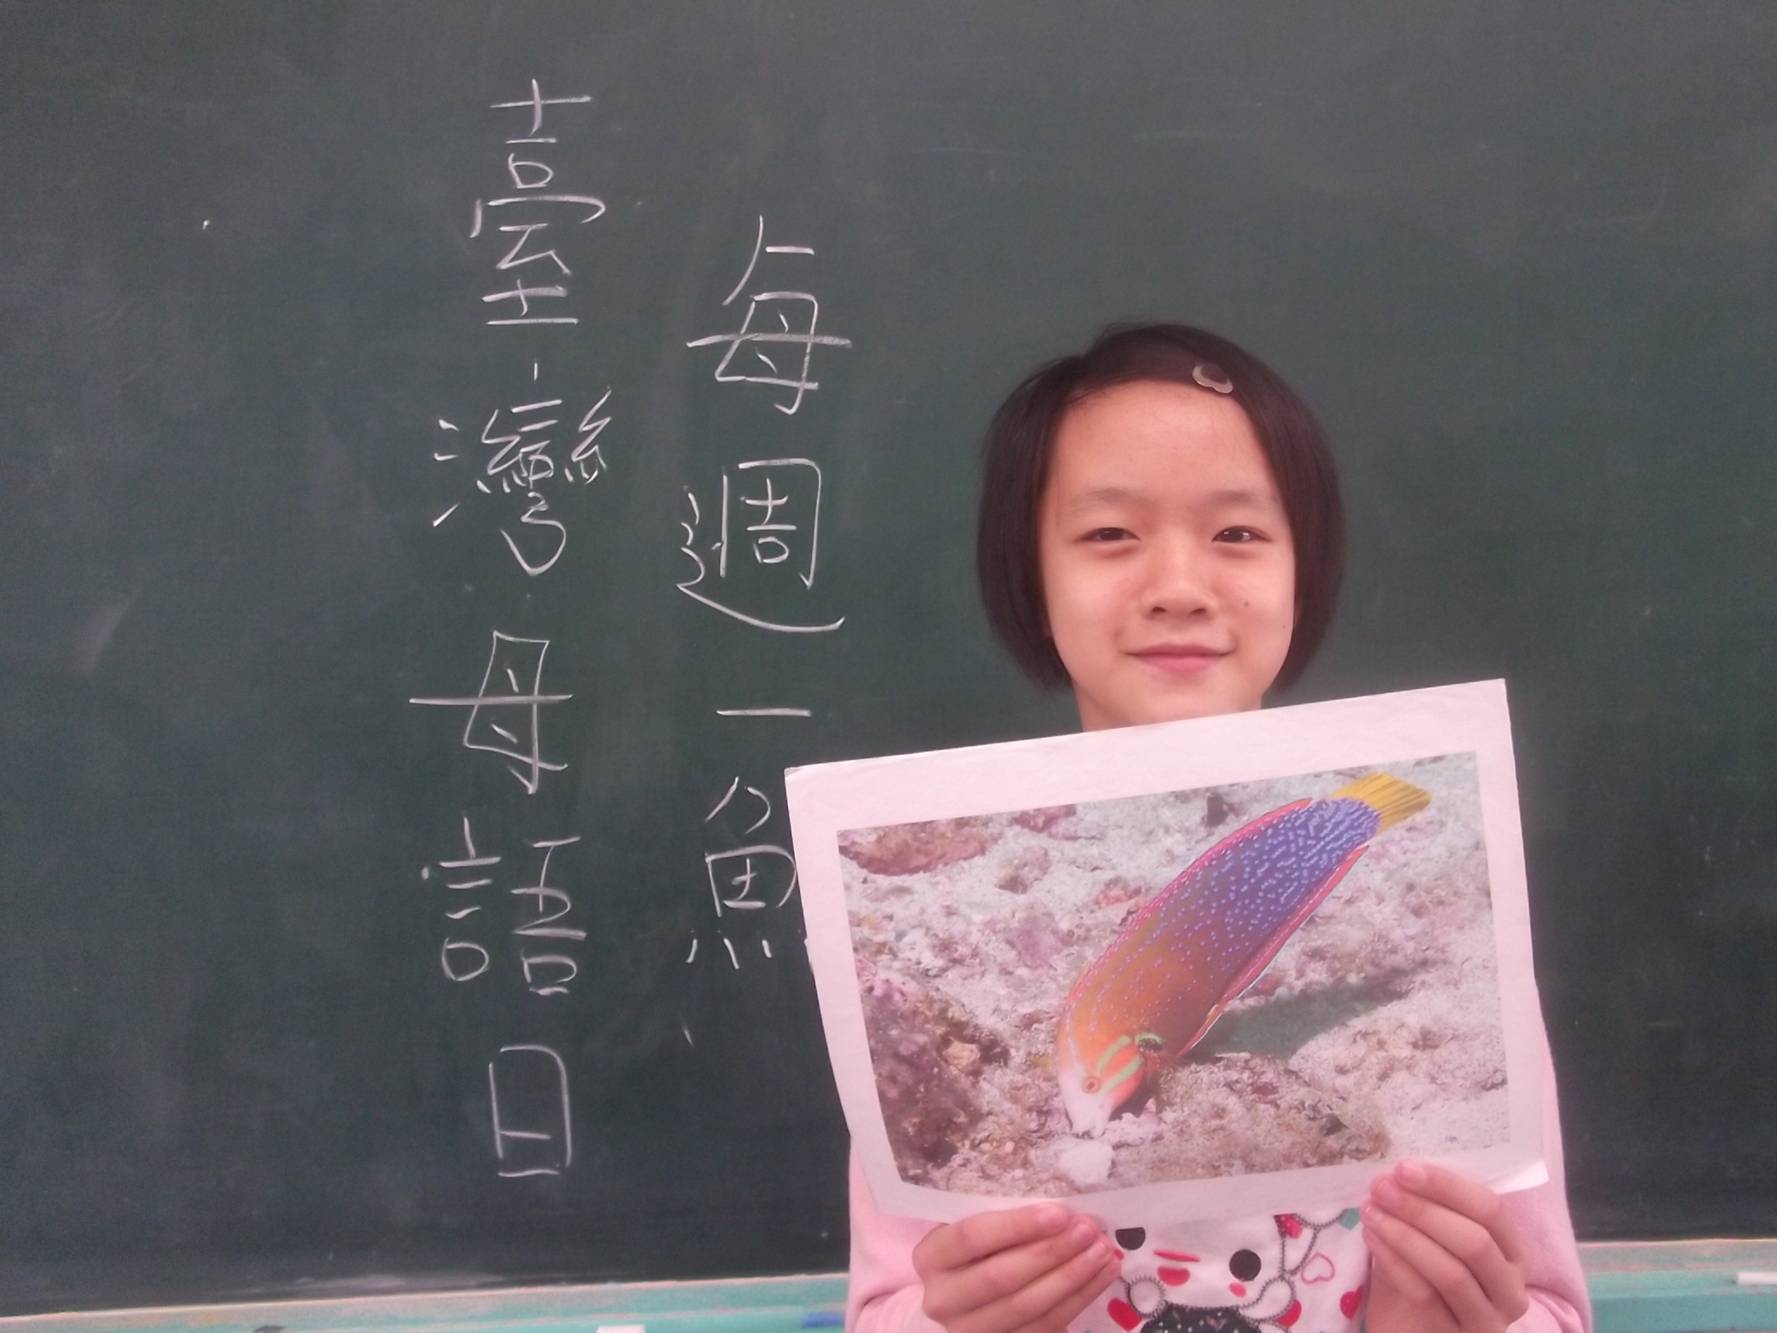 每週一魚
臺灣母語日